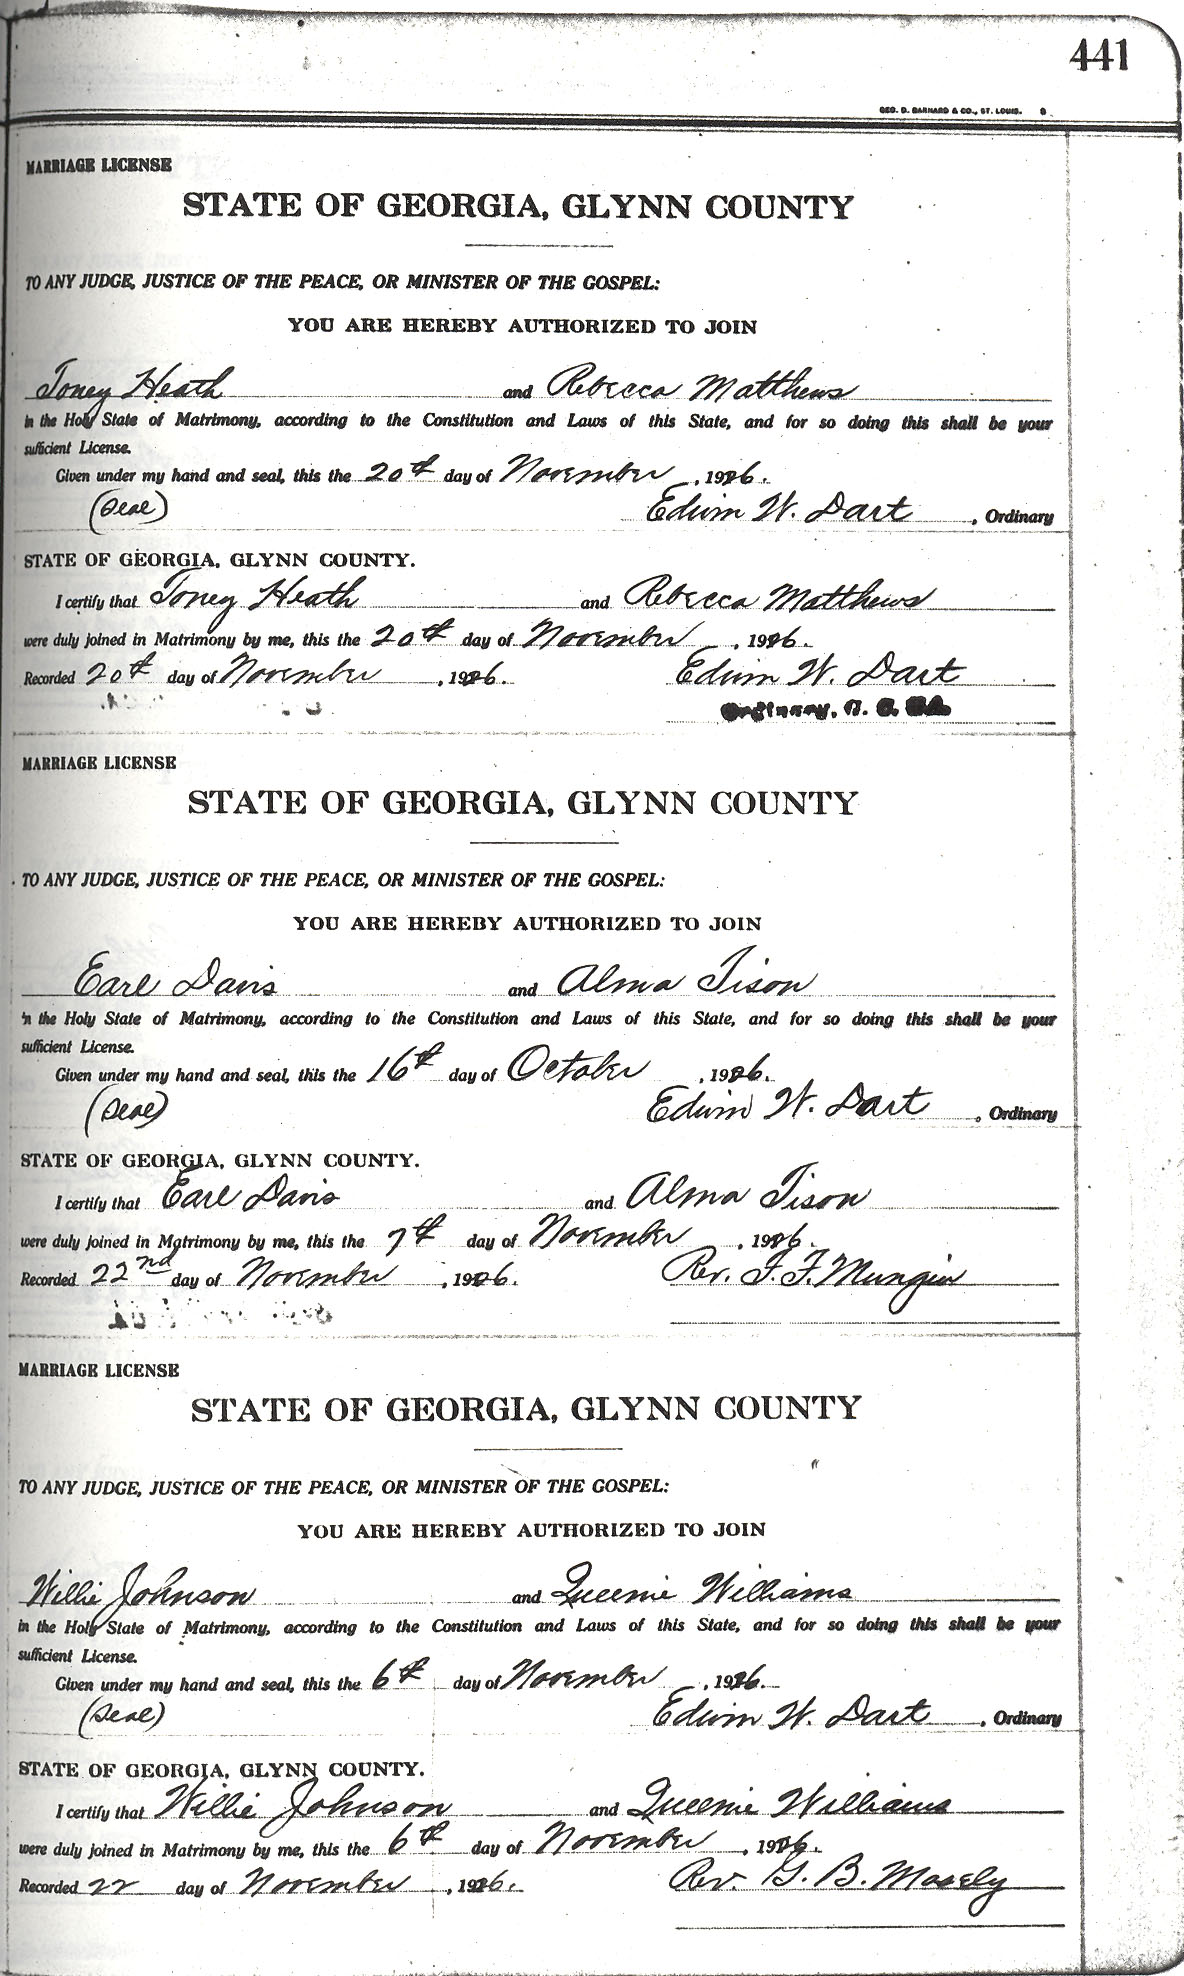 441
GEO. D. BARNARD & CO., ST. LOUIS.
MARRIAGE LICENSE
STATE OF GEORGIA, GLYNN COUNTY
TO ANY JUDGE, JUSTICE OF THE PEACE, OR MINISTER OF THE GOSPEL:
YOU ARE HEREBY AUTHORIZED TO JOIN
Toney Heath and Rebecca Matthews
in the Holy State of Matrimony, according to the Constitution and Laws of this State, and for so doing this shall be your
sufficient License.
Given under my hand and seal, this the 20th day of November, 1926.
(Seal) Edwin W. Dart, Ordinary
STATE OF GEORGIA, GLYNN COUNTY.
I certify that Toney Heath and Rebecca Matthews
were duly joined in Matrimony by me, this the 20th day of November, 1926.
Recorded 20th day of November, 1926. Edwin W. Dart
Ordinary, G. C. Ga.
MARRIAGE LICENSE
STATE OF GEORGIA, GLYNN COUNTY
TO ANY JUDGE, JUSTICE OF THE PEACE, OR MINISTER OF THE GOSPEL:
YOU ARE HEREBY AUTHORIZED TO JOIN
Earl Davis and Alma Tison
in the Holy State of Matrimony, according to the Constitution and Laws of this State, and for so doing this shall be your
sufficient License.
Given under my hand and seal, this the 16th day of October, 1926.
(Seal) Edwin W. Dart, Ordinary
STATE OF GEORGIA, GLYNN COUNTY.
I certify that Earl Davis and Alma Tison
were duly joined in Matrimony by me, this the 7th day of November, 1926.
Recorded 22nd day of November, 1926. Rev. F. F. Mungin
MARRIAGE LICENSE
STATE OF GEORGIA, GLYNN COUNTY
TO ANY JUDGE, JUSTICE OF THE PEACE, OR MINISTER OF THE GOSPEL:
YOU ARE HEREBY AUTHORIZED TO JOIN
Willie Johnson and Queenie Williams
in the Holy State of Matrimony, according to the Constitution and Laws of this State, and for so doing this shall be your
sufficient License.
Given under my hand and seal, this the 6th day of November, 1926.
(Seal) Edwin W. Dart, Ordinary
STATE OF GEORGIA, GLYNN COUNTY.
I certify that Willie Johnson and Queenie Williams
were duly joined in Matrimony by me, this the 6th day of November, 1926.
Recorded 22 day of November, 1926. Rev. G. B. Mosely